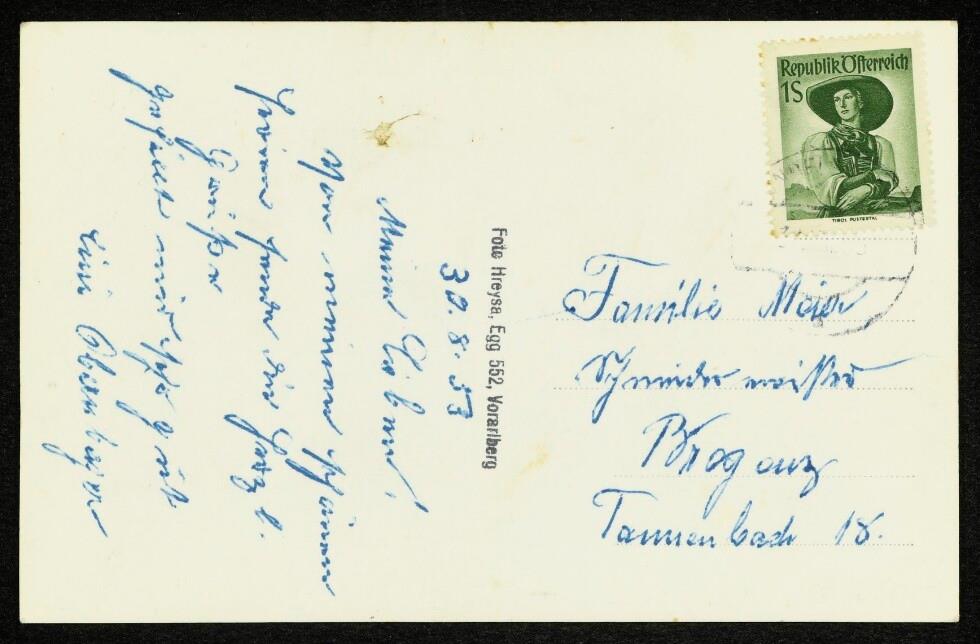 30.8.53
Meine Lieben!
Von meinen schönen
Ferien sende Dir herzl.
Grüße
gefällt mir sehr gut
Eure
Familie Meier
Schneidermeister
Bregenz
Tannenbach 18.
Foto Hreysa, Egg 552, Vorarlberg
Republik Österreich
1S
TIROL PUSTERTAL